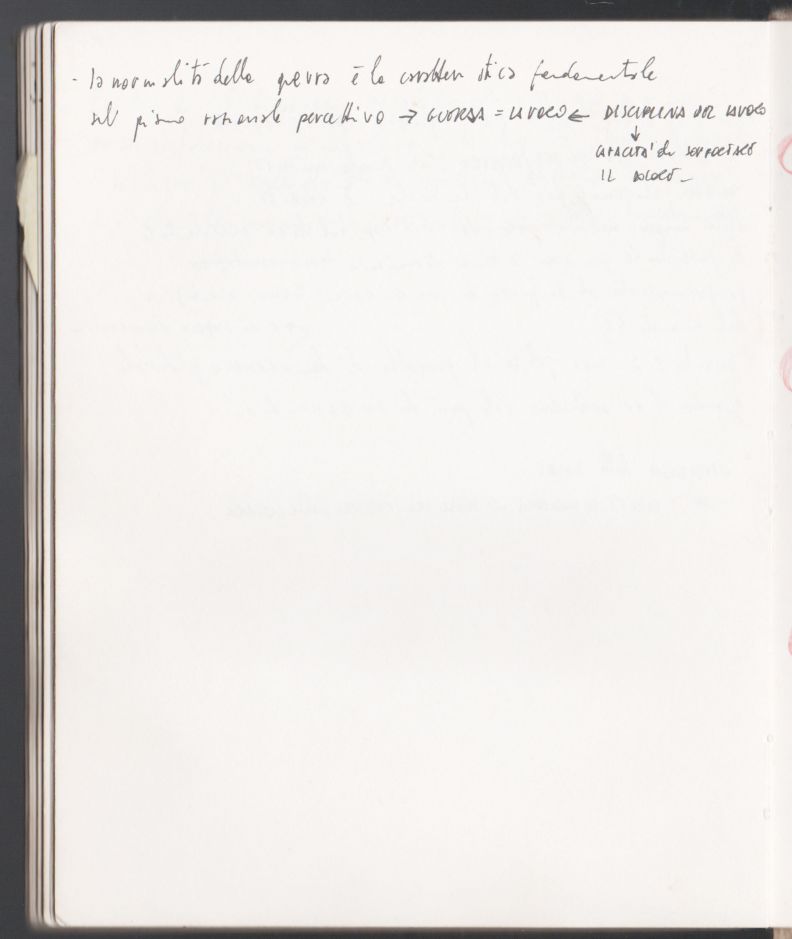 - la normalità della guerra è la caratteristica fondamentale
sul piano razionale percettivo → GUERRA = LAVORO ← DISCIPLINA DEL LAVORO
↓
CAPACITÀ di SOPPORTARE
IL DOLORE -